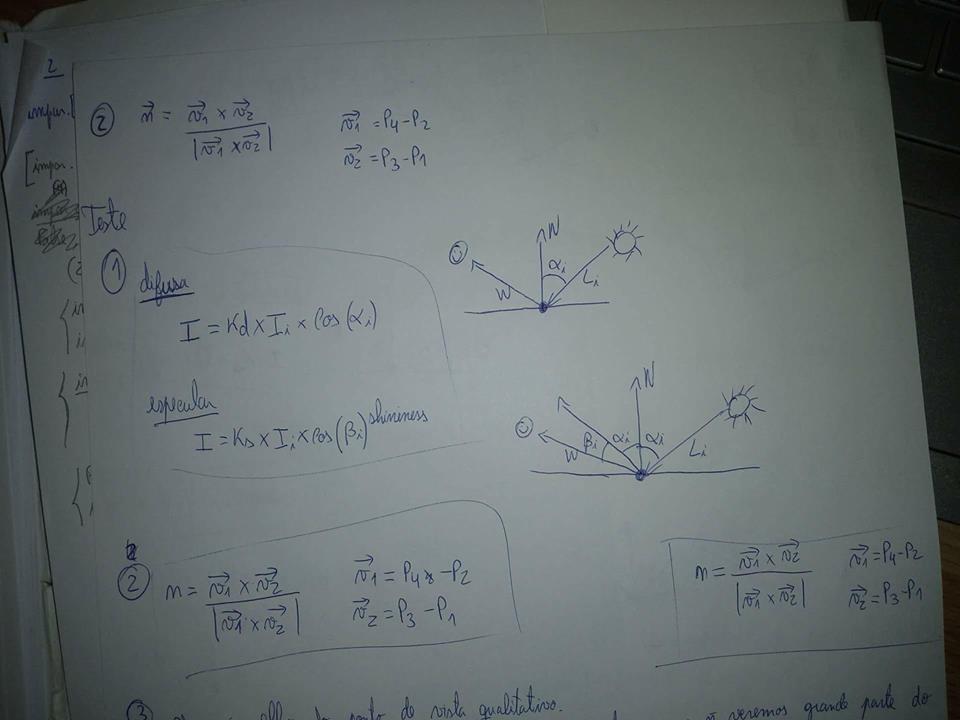 2
② n⃗ = v⃗1 × v⃗2 / |v⃗1 × v⃗2|
v⃗1 = P4 - P2
v⃗2 = P3 - P1
Teste
① difusa
I = Kd × Ii × cos(αi)
N
αi
Li
W
especular
I = Ks × Ii × cos(βi)^shininess
N
βi αi αi
W
Li
② n = v⃗1 × v⃗2 / |v⃗1 × v⃗2|
v⃗1 = P4 - P2
v⃗2 = P3 - P1
n = v⃗1 × v⃗2 / |v⃗1 × v⃗2|
v⃗1 = P4 - P2
v⃗2 = P3 - P1
③
de vista qualitativo.
veremos grande parte do